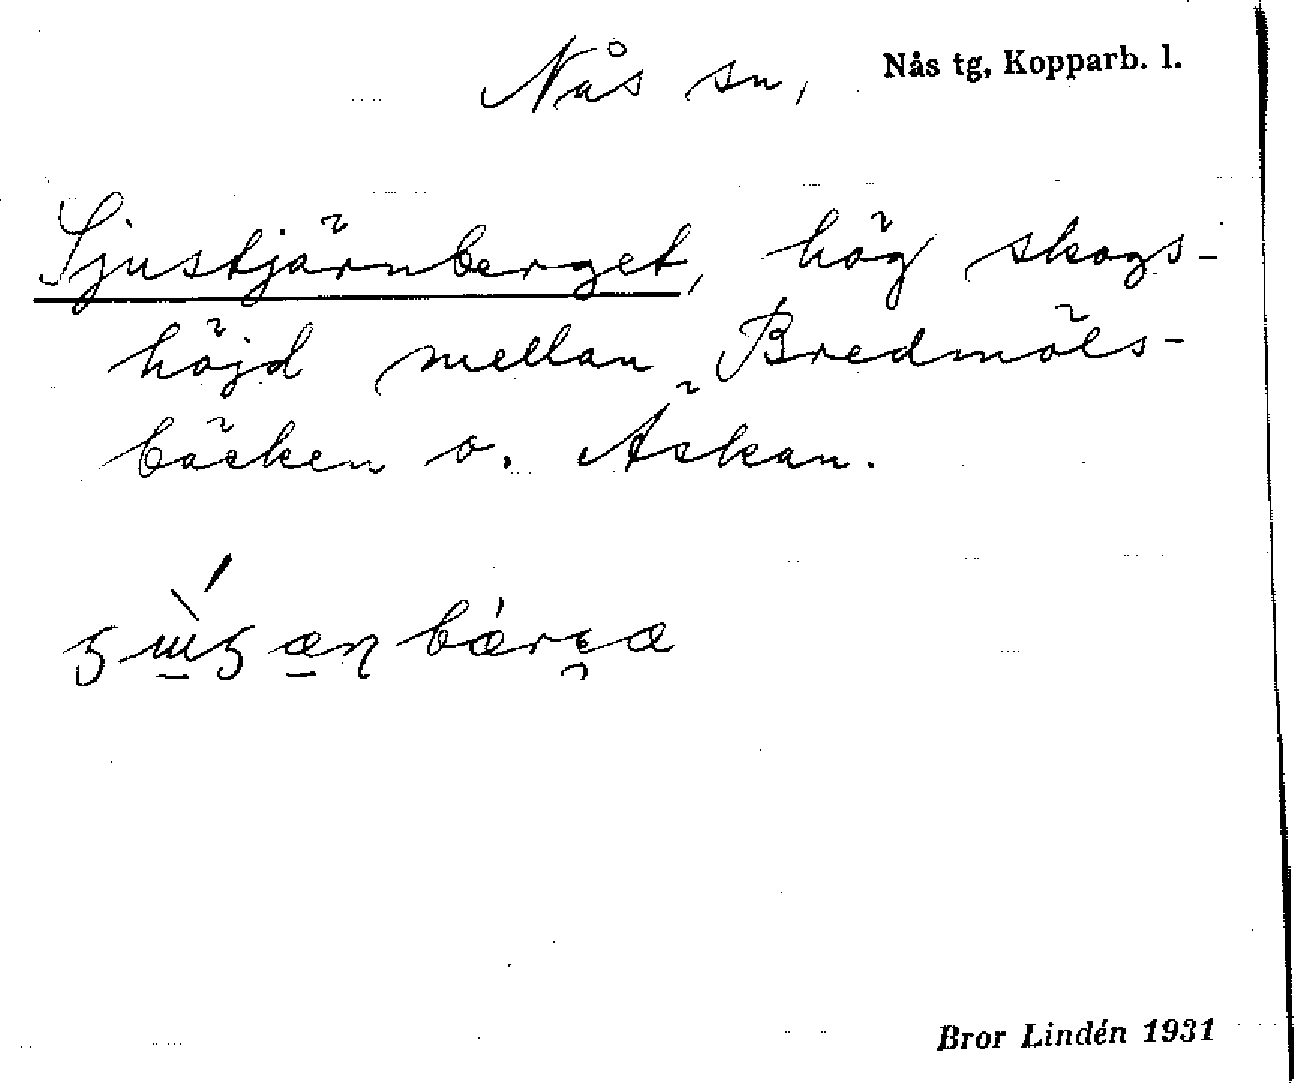 Nås sn, Nås tg, Kopparb. l.
Sjustjärnberget, hög skogs-
höjd mellan Bredmöls-
bäcken o. Äskan.
Bror Lindén 1931